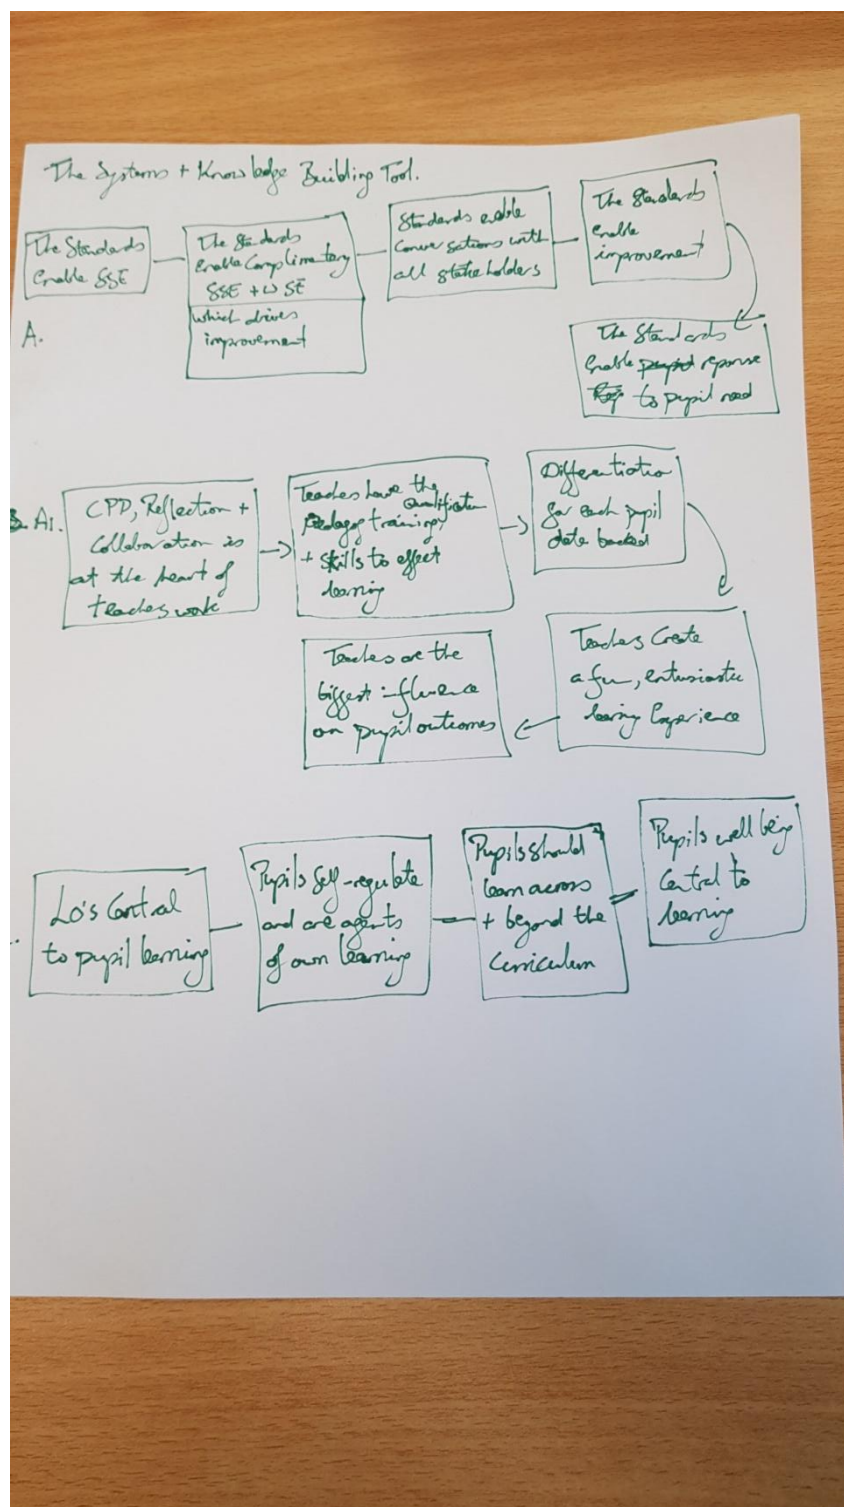 The Systems + Knowledge Building Tool.
The Standards
enable SSE
The Standards
enable Complimentary
SSE + WSE
which drives
improvement
Standards enable
Conversations with
all stakeholders
The Standards
enable
improvement
A.
The Standards
enable reponse
to pupil need
A1.
CPD, Reflection +
Collaboration is
at the heart of
teachers work
Teachers have the
Qualification
training,
+ skills to effect
learning
Differentiation
for each pupil
data backed
Teachers Create
a fun, entusiastic
learning Experience
Teachers are the
biggest influence
on pupil outcomes
LO's Central
to pupil learning
Pupils self-regulate
and are agents
of own learning
Pupils should
learn across
+ beyond the
Curriculum
Pupils well being
Central to
learning